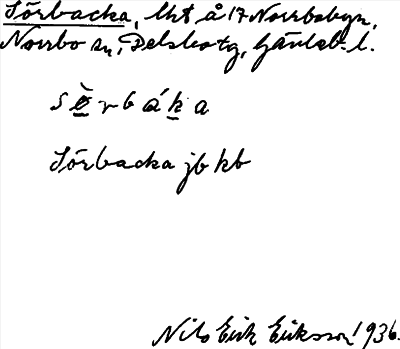 Sörbacka, lht å 17 Norrbobyn,
Norrbo sn, Delsbo tg, Gävleb. l.
sè̱rbáḵa
Sörbacka jb kb
Nils Erik Eriksson 1936.